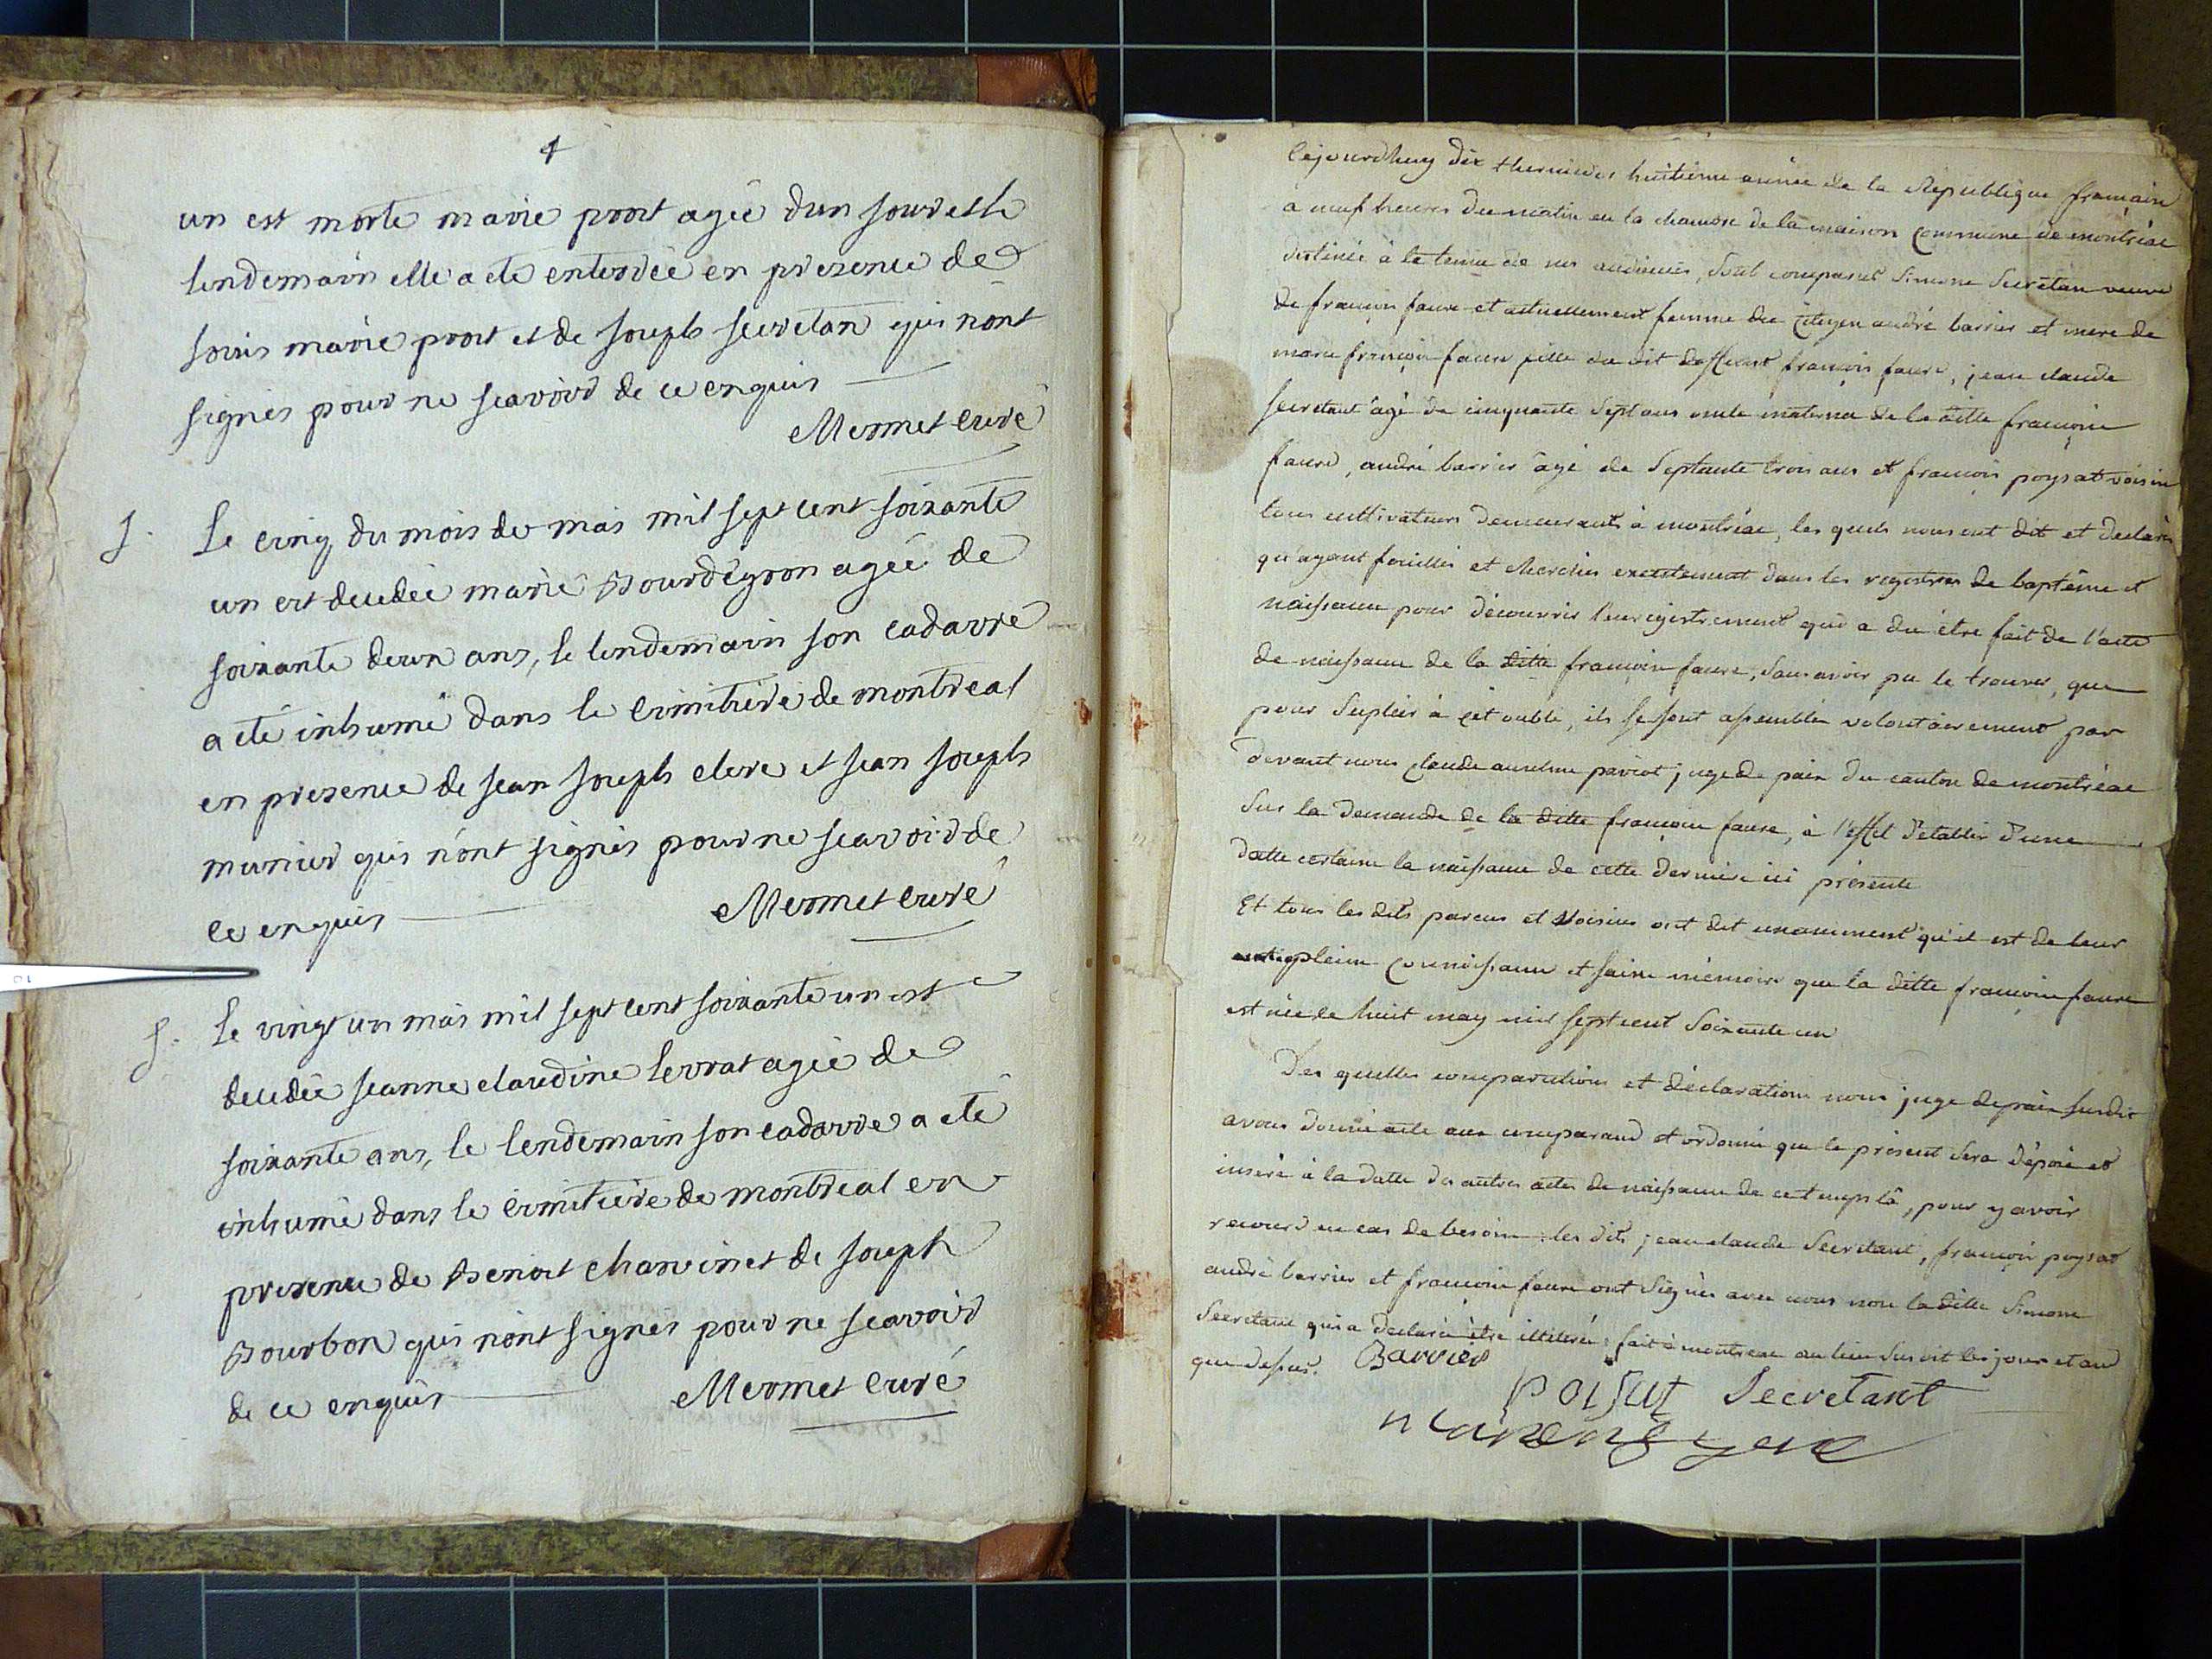 4
un est morte marie prost agée dun jour et le
lendemain elle a ete enterrée en presence de
louis marie prost et de joseph secretan qui n'ont
signés pour ne scavoir de ce enquis
Mermet curé
S. Le cinq du mois de mai mil sept cent soixante
un est decedée marie Bourdegron agée de
soixante deux ans, le lendemain son cadavre
a eté inhumé dans le cimitiere de montreal
en presence de jean joseph clerc et jean joseph
munier qui n'ont signés pour ne scavoir de
ce enquis
Mermet curé
S. Le vingt un mai mil sept cent soixante un est
decedée jeanne claudine levrat agée de
soixante ans, le lendemain son cadavre a ete
inhumé dans le cimitiere de montreal en
presence de Benoit chanvin et de joseph
Bourbon qui n'ont signés pour ne scavoir
de ce enquis
Mermet curé
Cejourdhuy dix thermidor huitieme année de la Republique francaise
a neuf heures du matin en la chambre de la maison commune de montréal
destinée à la tenue de nos audiences, Sont comparus Simone Secretan veuve
de francois faure et actuellement femme du citoyen andré barrier et mere de
marie francoise faure fille du dit deffunt francois faure, jean claude
secretant agé de cinquante sept ans oncle maternel de la ditte francoise
faure, andré barrier agé de septante trois ans et francois poysat voisin
tous cultivateurs demeurants à montréal, les quels nous ont dit et declarés
qu'ayant fouillés et cherchés exactement dans les registres de baptême et
naissance pour découvrir l'enregistrement qui a du être fait de l'acte
de naissance de la ditte francoise faure, sans avoir pu le trouver, que
pour supléer à cet oubli, ils se sont assemblés volontairement par
devant nous claude anselme paviot juge de paix du canton de montréal
sur la demande de la ditte francoise faure, à l'effet d'etablir d'une
datte certaine la naissance de cette derniere ici présente
Et tous les dits parens et voisins ont dit unanimement qu'il est de leur
pleine connoissance et saine mémoire que la ditte francoise faure
est née le huit may mil sept cent soixante un
Des quelles comparutions et déclarations nous juge de paix susdit
avons donné acte aux comparans et ordonné que le présent sera déposé et
inseré à la datte des autres actes de naissance de ce temps là, pour y avoir
recours en cas de besoin. les dits jean claude Secretant, francois poysat
andré barrier et francoise faure ont signés avec nous non la ditte Simone
Secretant qui a declaré être illiterée. fait à montreal au lieu susdit les jour et an
que dessus. Barrier
poisat Secretant